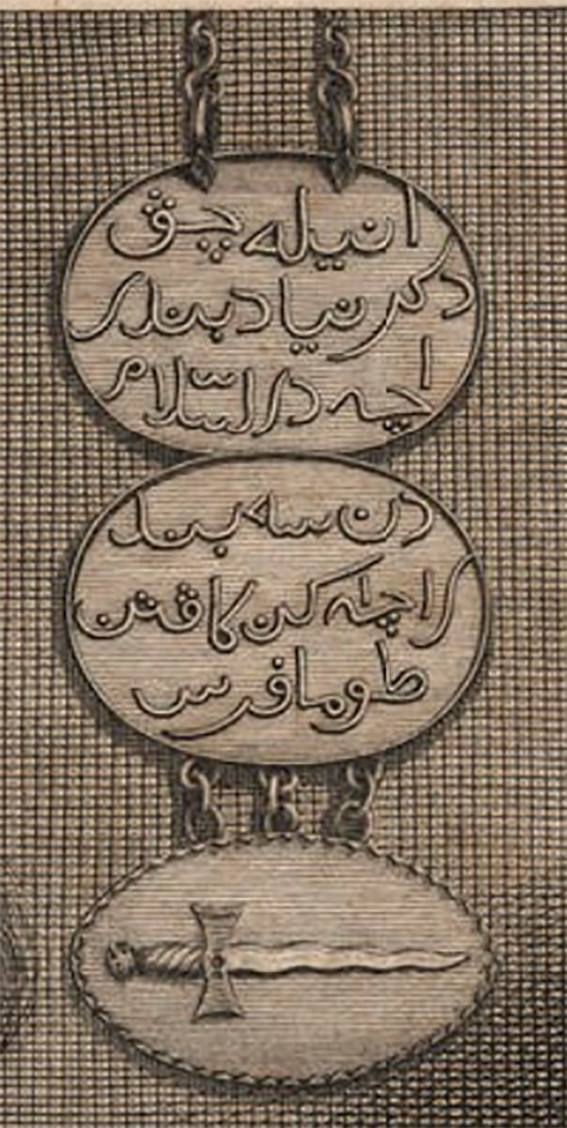 انيله چڤ
دكرنيا دبندر
اچه درالسّلام
دن سه بند
راچه كن كاڤتن
طوما فرس